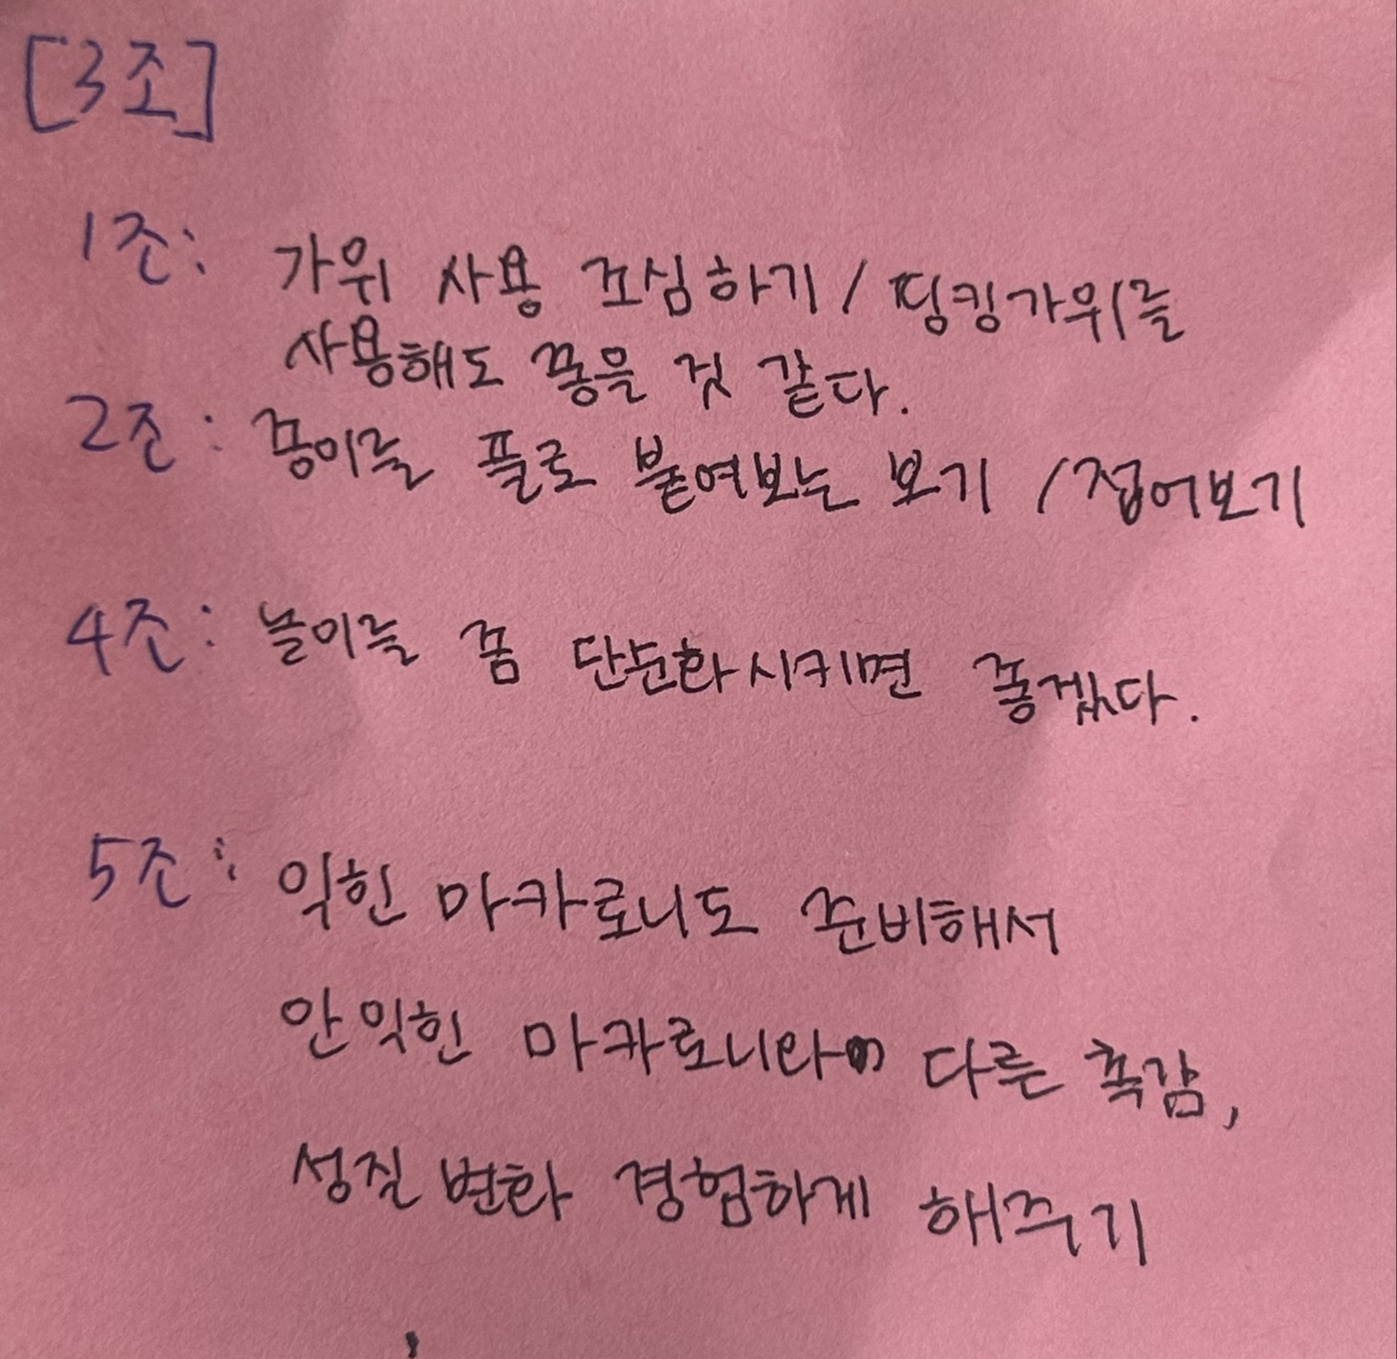 [3조]
1조: 가위 사용 조심하기 / 핑킹가위를
사용해도 좋을 것 같다.
2조: 종이를 풀로 붙여보는 보기 / 접어보기
4조: 놀이를 좀 단순화시키면 좋겠다.
5조: 익힌 마카로니도 준비해서
안 익힌 마카로니랑 다른 촉감,
성질 변화 경험하게 해주기